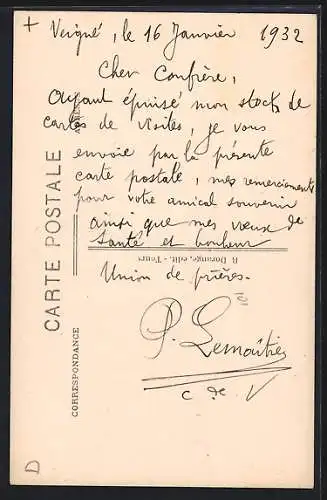 + Veigné, le 16 Janvier 1932
Cher Confrère,
Ayant épuisé mon stock de
cartes de visites, je vous
envoie par la présente
carte postale, mes remerciements
pour votre amical souvenir
ainsi que mes vœux de
santé et bonheur
Union de prières.
P. Lemaître
C de V
CARTE POSTALE
CORRESPONDANCE
ADRESSE
B. Dorange, edit. - Tours
101
D